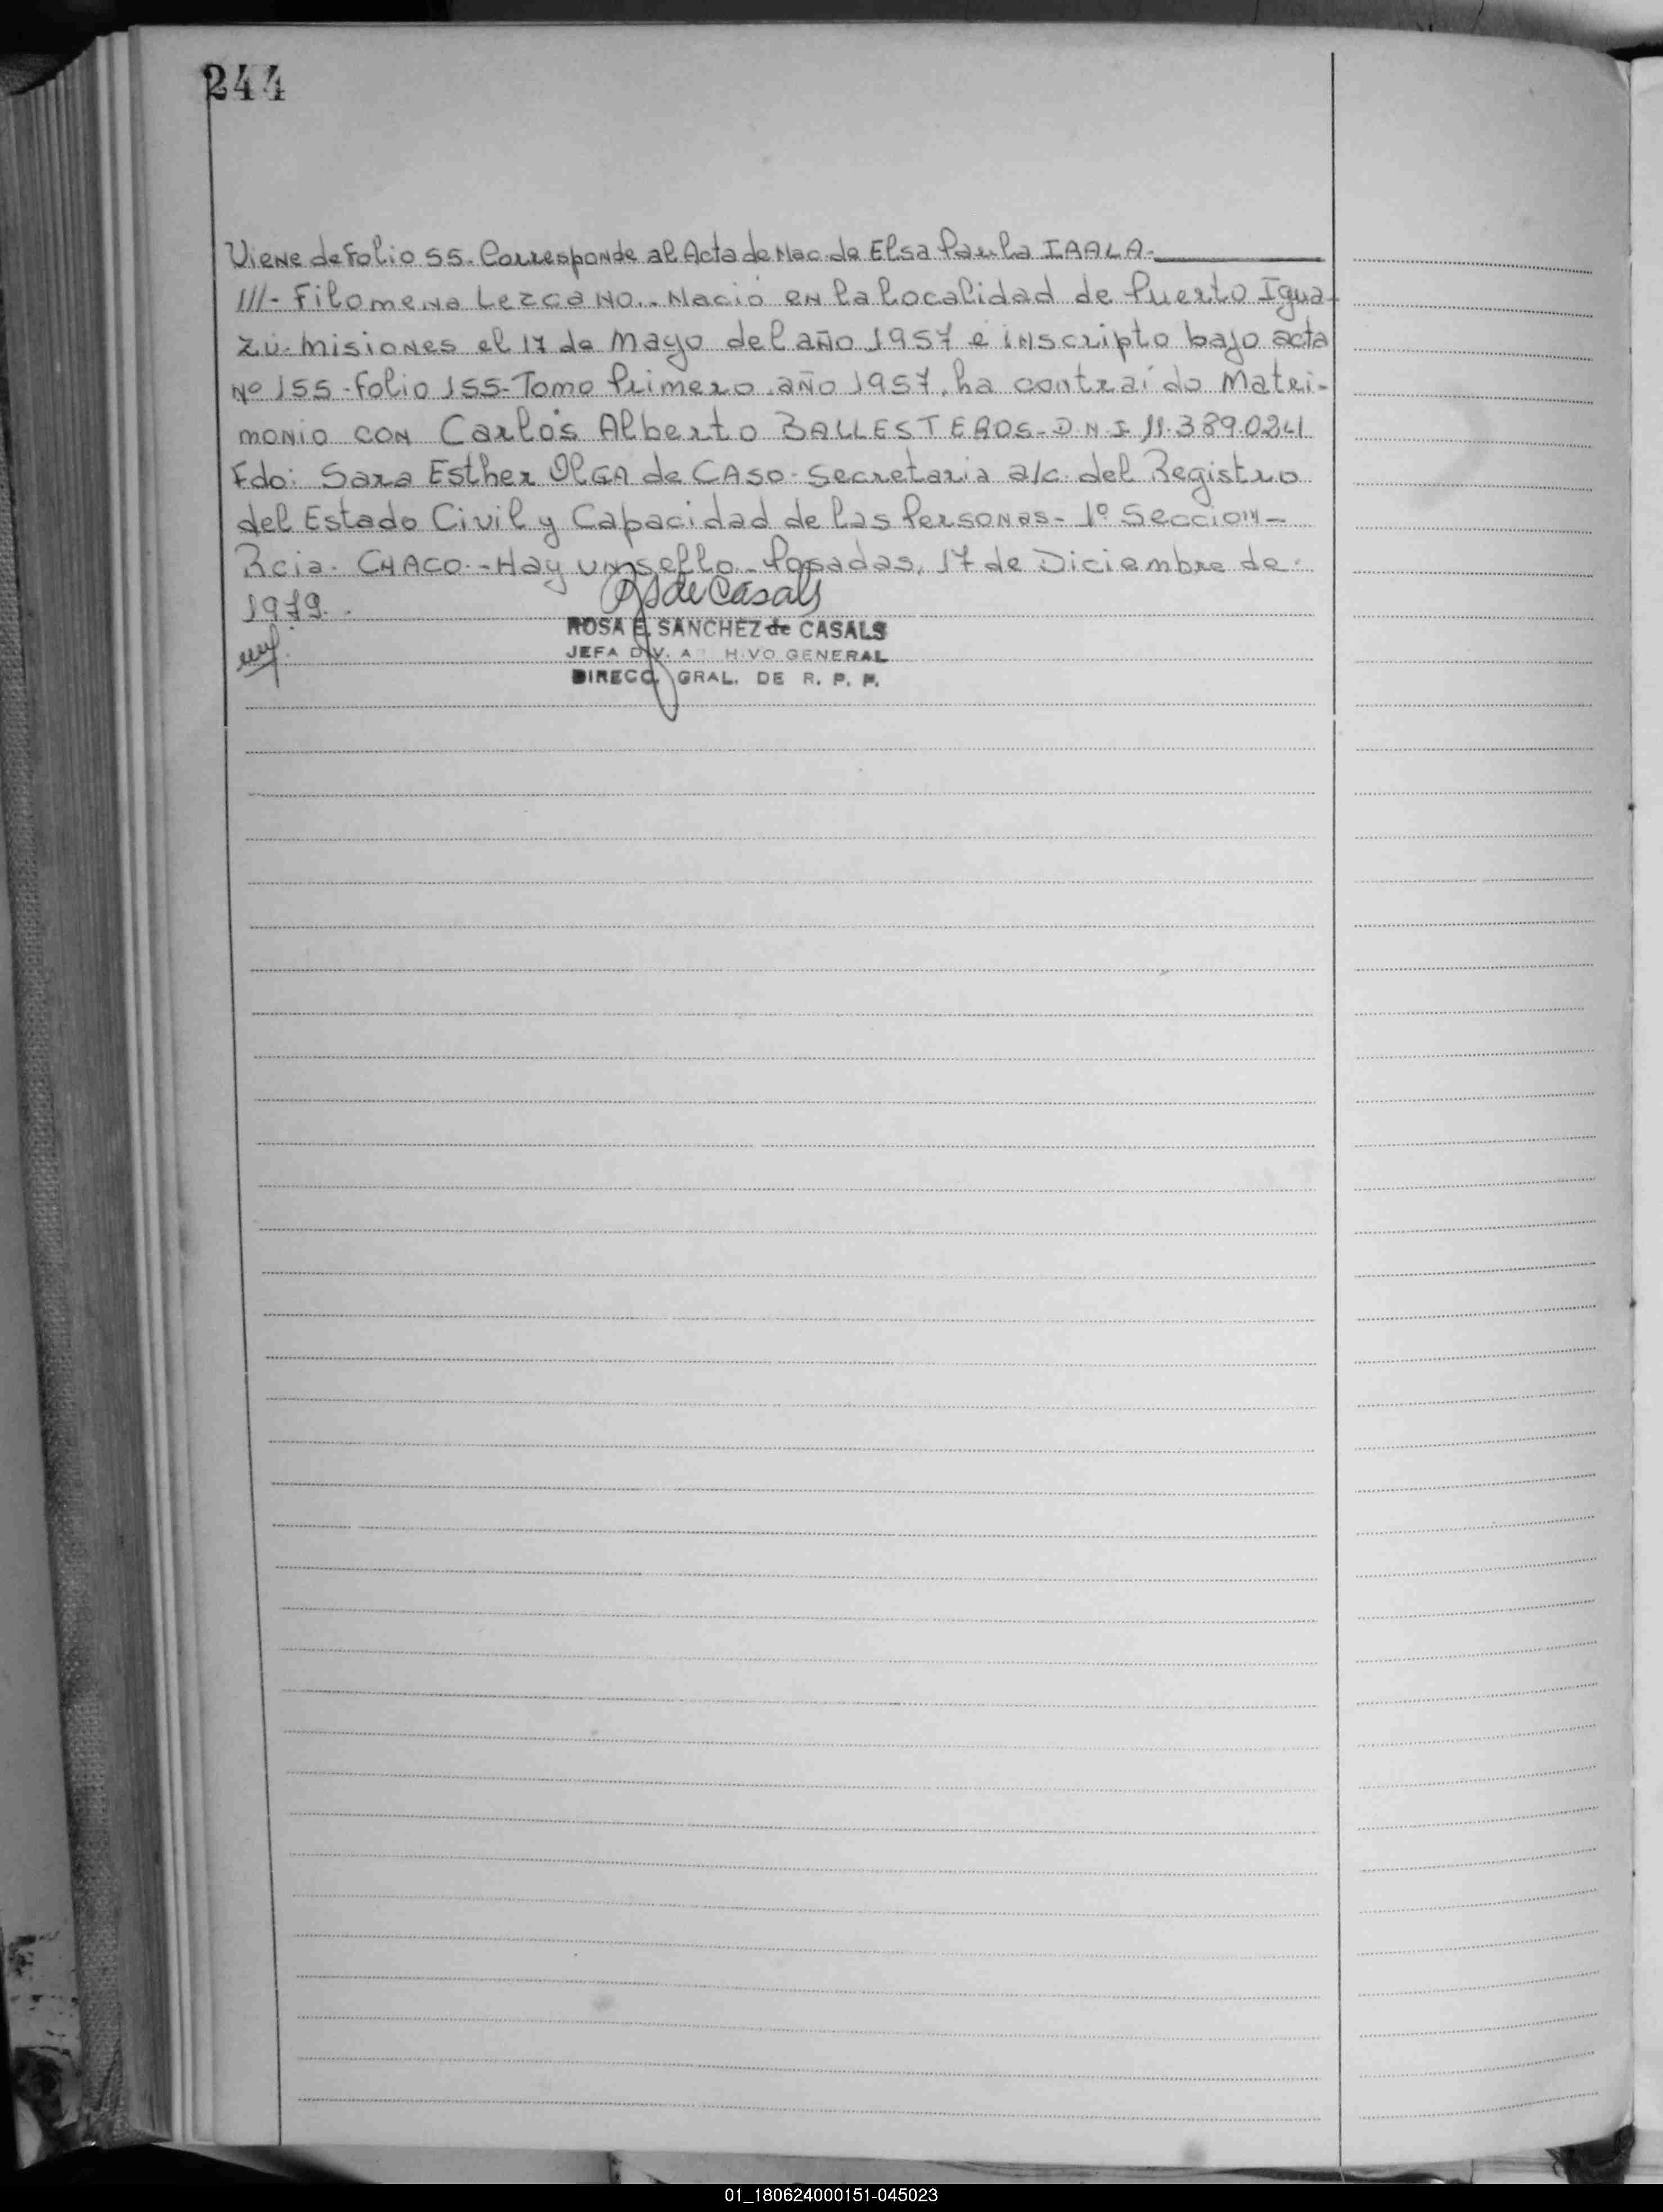 244
Viene de Folio 55. Corresponde al Acta de Nac. de Elsa Paula IRALA.
III- Filomena Lezcano.. Nació en la localidad de Puerto Igua-
zú-Misiones el 17 de Mayo del año 1957 e inscripto bajo acta
Nº 155-Folio 155-Tomo Primero. año 1957. ha contraído Matri-
monio con Carlos Alberto BALLESTEROS-D.N.I 11.389.024
Fdo: Sara Esther OlGA de CASO-Secretaria a/c. del Registro
del Estado Civil y Capacidad de las Personas- 1º Sección-
Rcia. CHACO.-Hay un sello.-Posadas, 17 de Diciembre de
1979.
RS de Casals
ROSA E. SANCHEZ de CASALS
JEFA DIV. A HIVO GENERAL
DIRECC. GRAL. DE R. P. P.
01_180624000151-045023